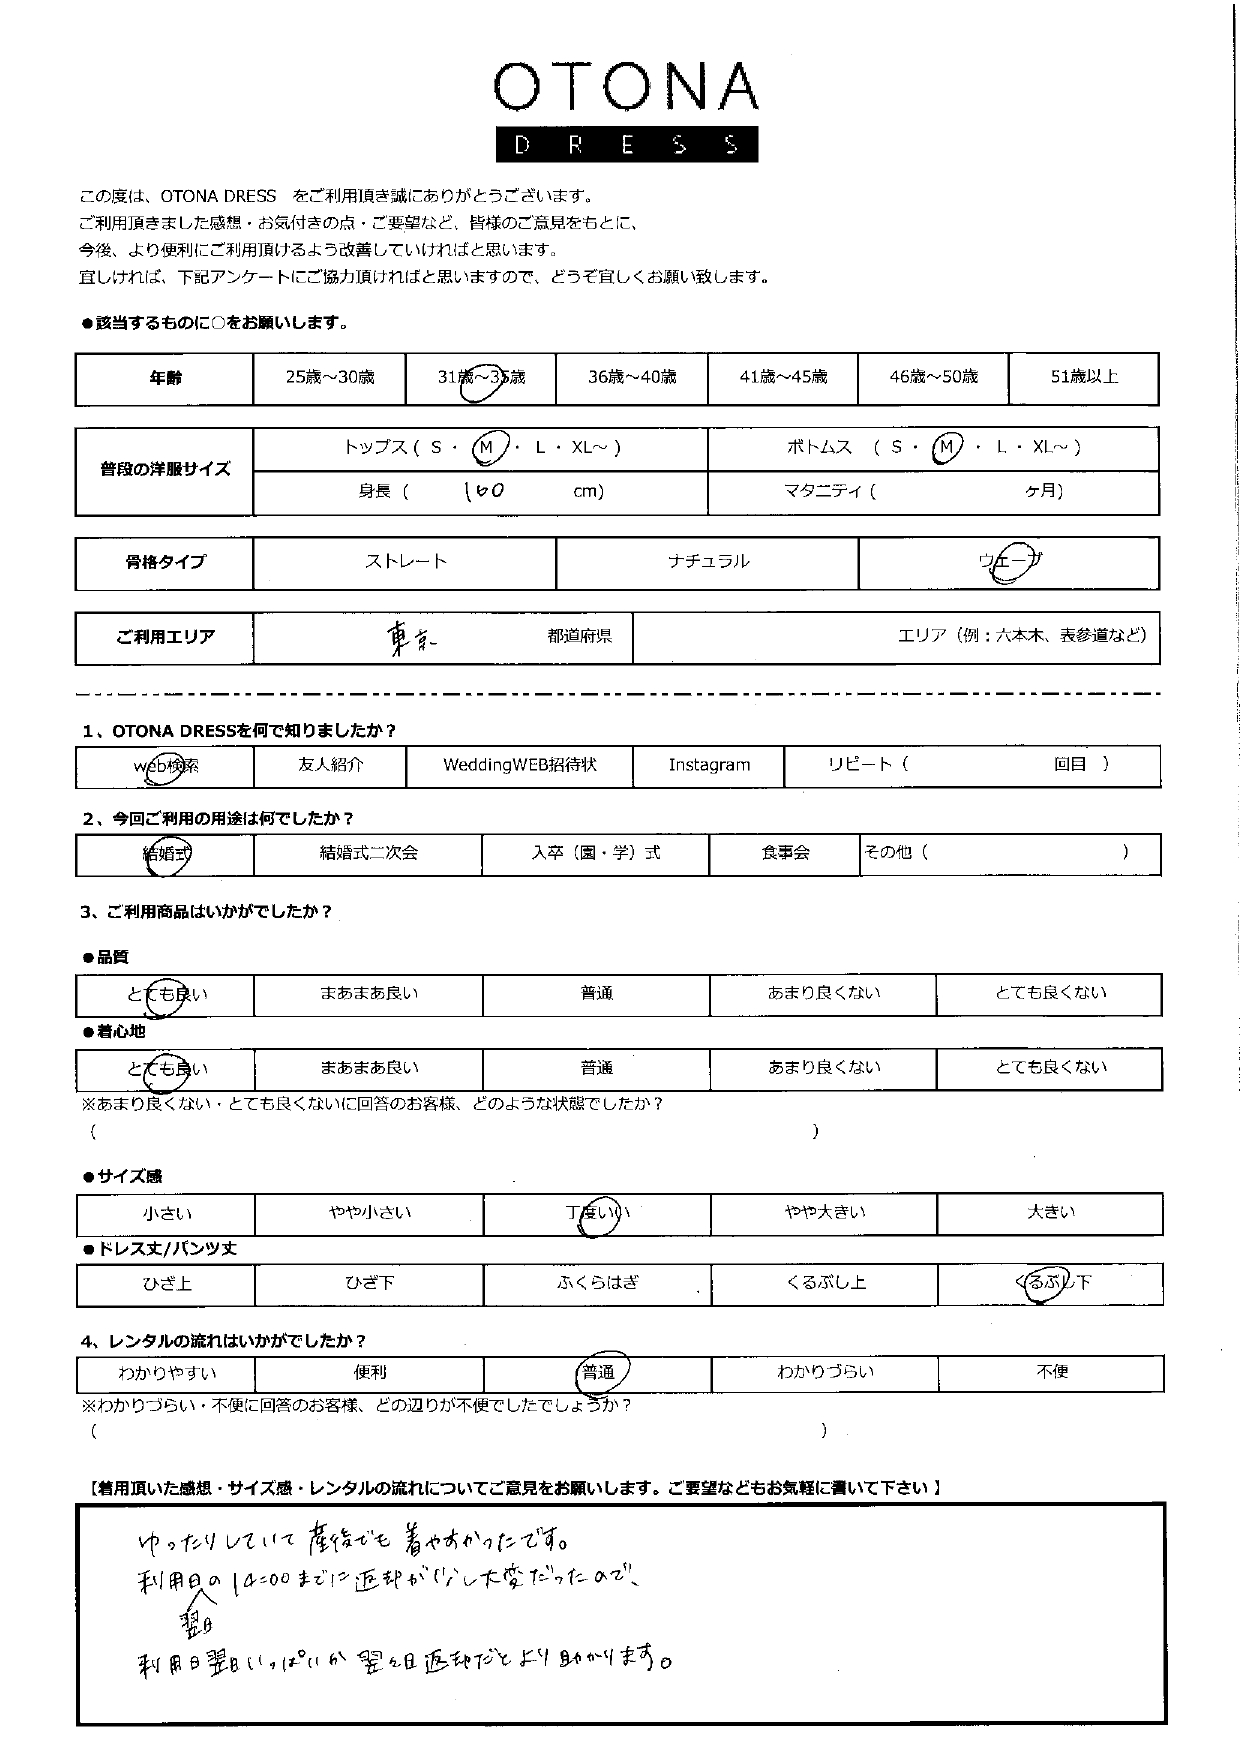 OTONA
DRESS
この度は、OTONA DRESS　をご利用頂き誠にありがとうございます。
ご利用頂きました感想・お気付きの点・ご要望など、皆様のご意見をもとに、
今後、より便利にご利用頂けるよう改善していければと思います。
宜しければ、下記アンケートにご協力頂ければと思いますので、どうぞ宜しくお願い致します。
●該当するものに○をお願いします。
年齢 25歳～30歳 31歳～35歳 36歳～40歳 41歳～45歳 46歳～50歳 51歳以上
普段の洋服サイズ トップス ( S ・ M ・ L ・ XL～ ) ボトムス ( S ・ M ・ L ・ XL～ )
身長 ( 160 cm) マタニティ ( ヶ月)
骨格タイプ ストレート ナチュラル ウェーブ
ご利用エリア 東京 都道府県 エリア（例：六本木、表参道など）
1、OTONA DRESSを何で知りましたか？
web検索 友人紹介 WeddingWEB招待状 Instagram リピート（ 回目 ）
2、今回ご利用の用途は何でしたか？
結婚式 結婚式二次会 入卒（園・学）式 食事会 その他（ ）
3、ご利用商品はいかがでしたか？
●品質
とても良い まあまあ良い 普通 あまり良くない とても良くない
●着心地
とても良い まあまあ良い 普通 あまり良くない とても良くない
※あまり良くない・とても良くないに回答のお客様、どのような状態でしたか？
（ ）
●サイズ感
小さい やや小さい 丁度いい やや大きい 大きい
●ドレス丈/パンツ丈
ひざ上 ひざ下 ふくらはぎ くるぶし上 くるぶし下
4、レンタルの流れはいかがでしたか？
わかりやすい 便利 普通 わかりづらい 不便
※わかりづらい・不便に回答のお客様、どの辺りが不便でしたでしょうか？
（ ）
【着用頂いた感想・サイズ感・レンタルの流れについてご意見をお願いします。ご要望などもお気軽に書いて下さい 】
ゆったりしていて産後でも着やすかったです。
利用日の14:00までに返却が少し大変だったので、
翌日
利用日翌日いっぱいか翌々日返却だとより助かります。